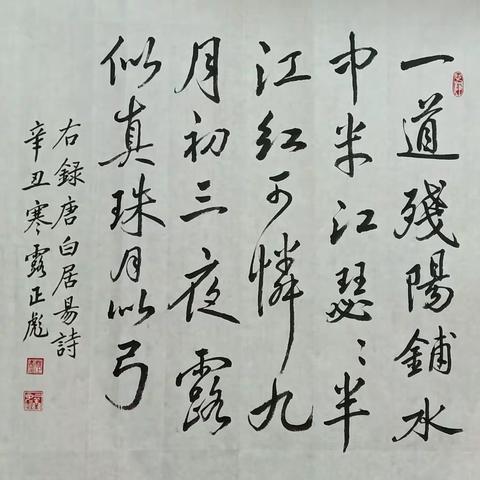 一道殘陽鋪水
中半江瑟〻半
江红可憐九
月初三夜露
似真珠月似弓
右録唐白居易詩
辛丑寒露正彪